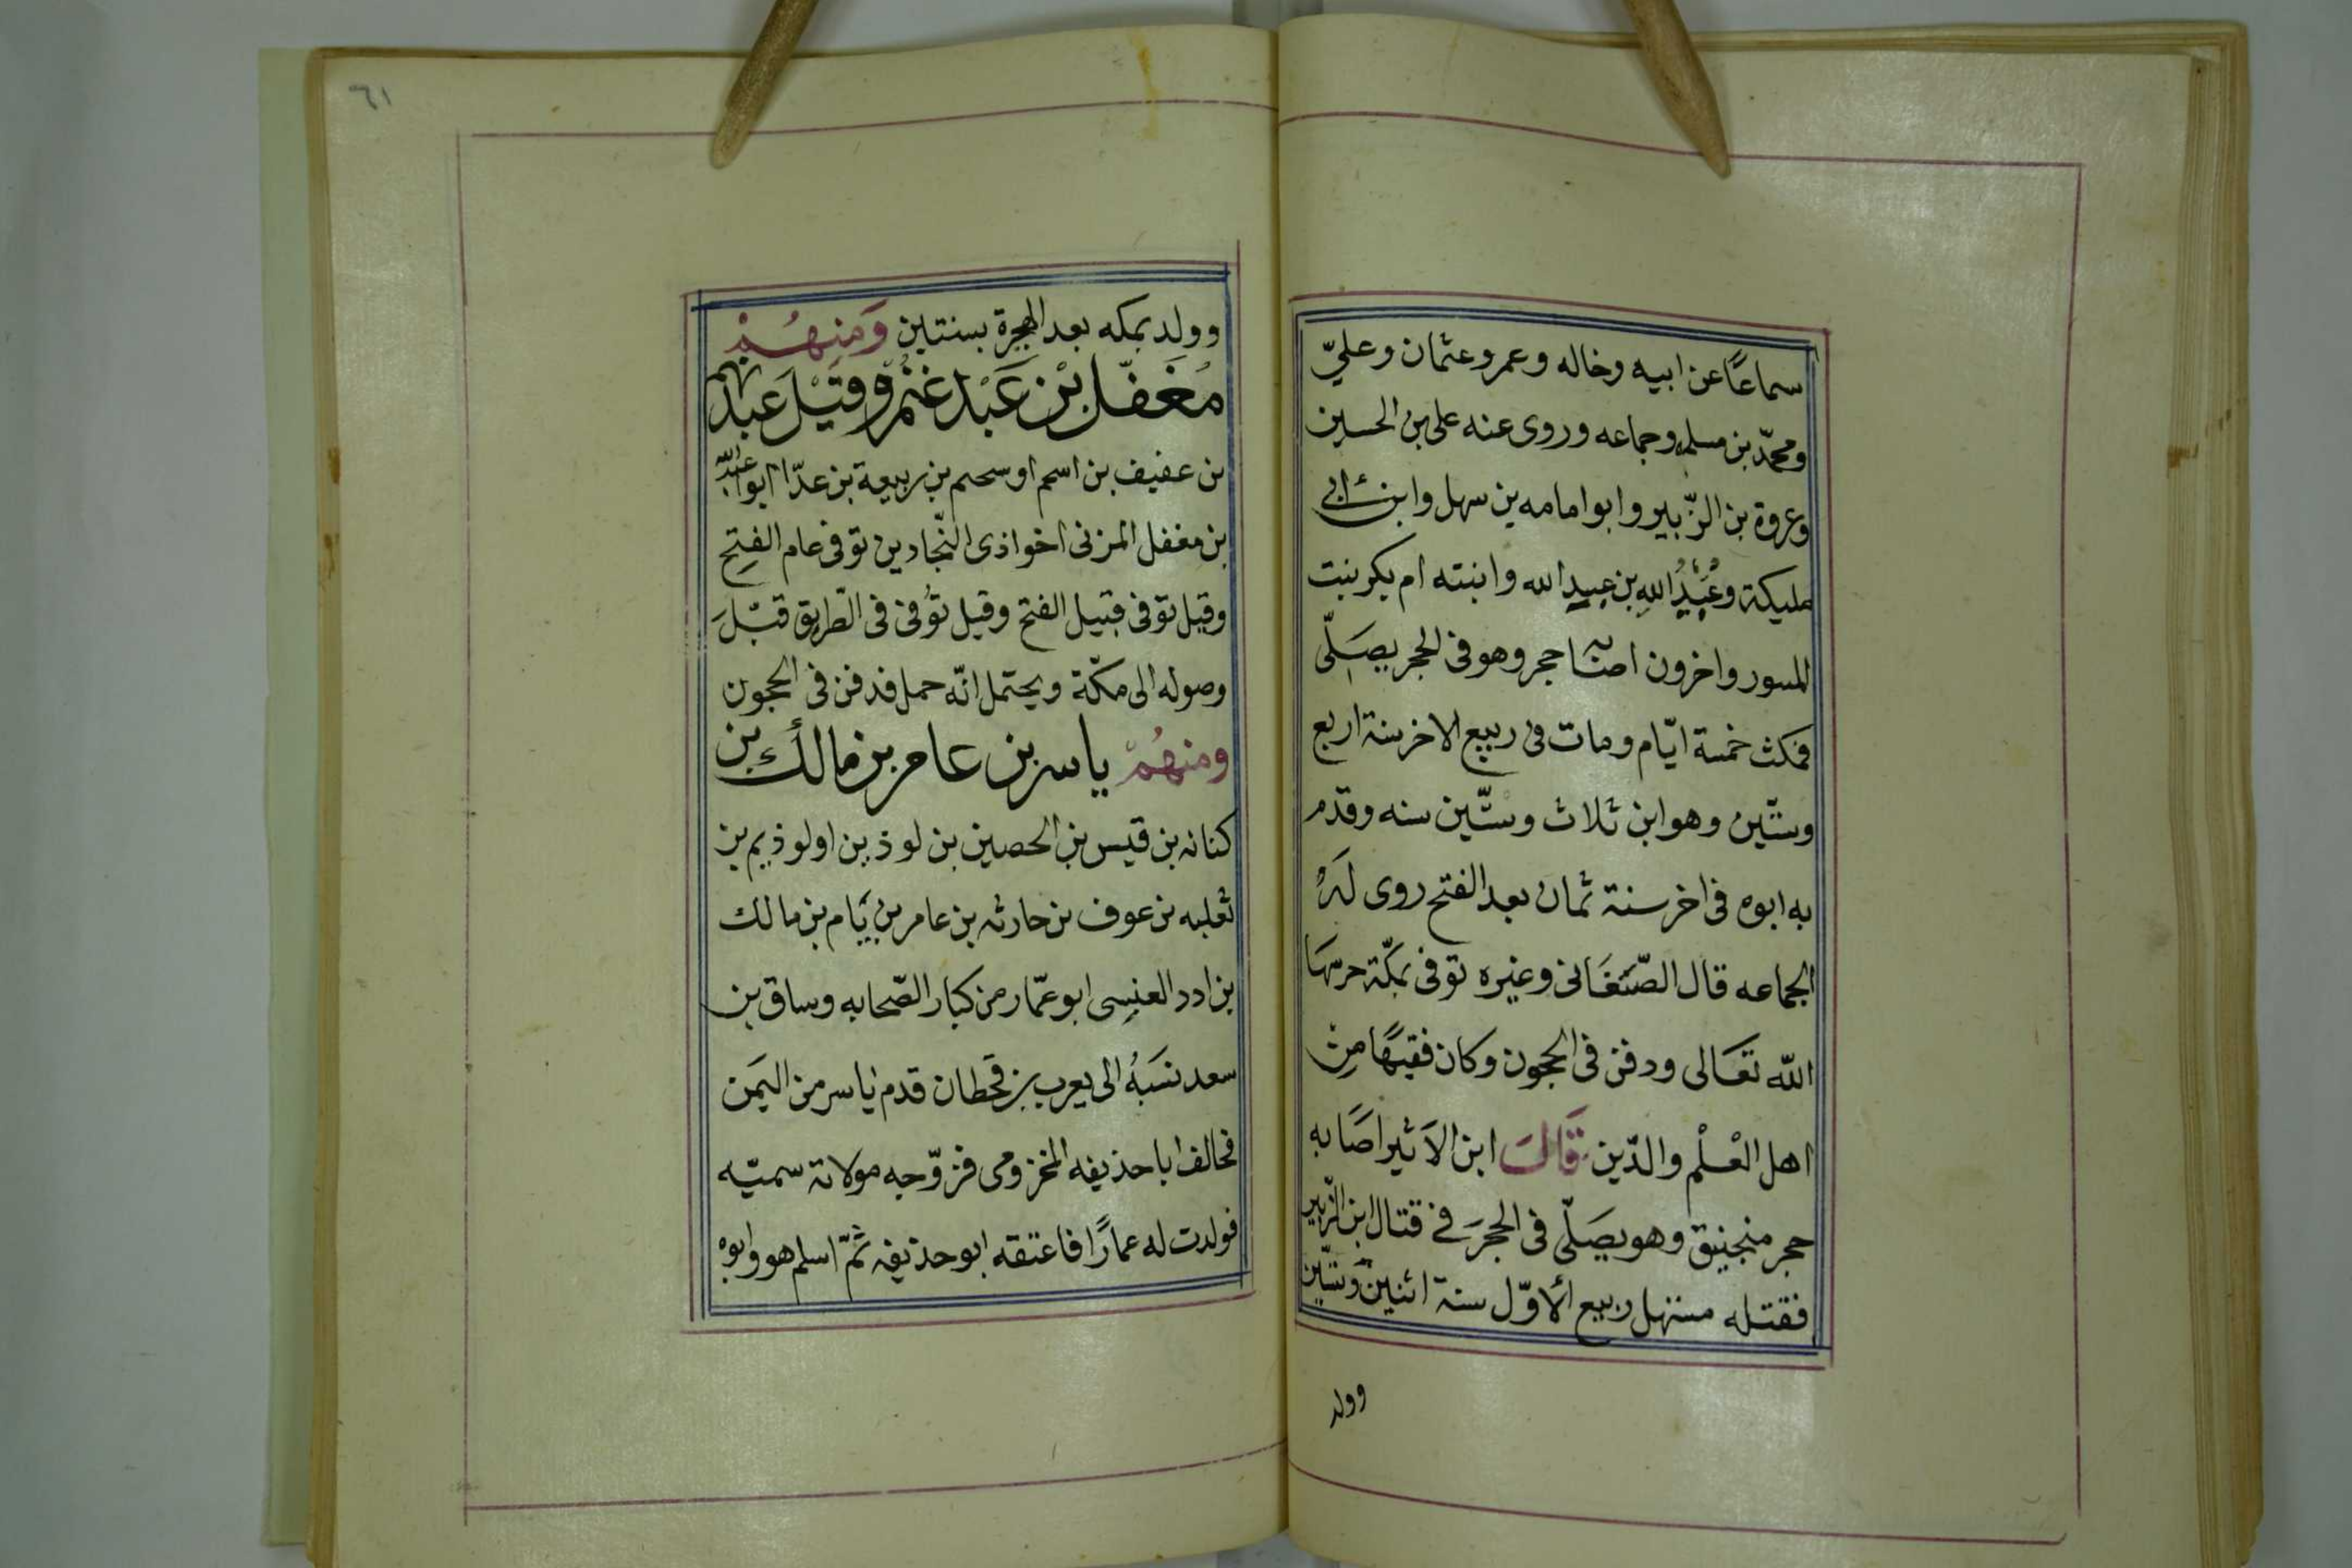 سماعًا عن ابيه وخاله وعمر وعثمان وعليّ
ومحمّد بن مسلمه وجماعه وروى عنه على بن الحسين
وعروة بن الزّبير وابو امامه بن سهل وابن ابى
مليكة وعُبَيْدُ اللهِ بن عبيد الله وابنته ام بكر بنت
المسور واخرون اصابه حجر وهو فى الحجر يصَلّى
فمكث خمسة ايّام ومات فى ربيع الاخر سنة اربع
وستّين وهو ابن ثلاث وستّين سنه وقدم
به ابوه فى اخر سنة ثمان بعد الفتح روى لَهُ
الجماعه قال الصّغَانى وغيره توفى بمكّة حرسها
الله تعَالى ودفن فى الحجون وكان فقيهًا مِن
اهل العْلْم والدّين قَالَ ابن الاَثير اصَابه
حجر منجنيق وهو يصَلّى فى الحجرَ فى قتال ابن الزّبير
فقتله مستهل ربيع الأوّل سنة اثنين وَستّين
وولد
٦١
وولد بمكه بعد الهجرة بسنتين وَمنِهُمْ
مُغَفّل بْن عَبْد غنمْ وقيْل عَبد نهم
بن عفيف بن اسحم او سحم بن ربيعة بن عدّا ابو عبد الله
بن مغفل المزنى اخو اذى النّجادين توفى عام الفتِح
وقيل توفى قبيل الفتح وقيل تُوفى فى الطّريق قبْلَ
وصوله الى مكّة ويحتمل انّه حمل فدفن فى الحجون
ومنهُمْ ياسر بن عامر بن مالك بن
كنانه بن قيس بن الحصين بن لوذين او لوذيم بن
ثعلبه بن عوف بن حارثه بن عامر بن يَام بن مالك
بن ادد العنسِى ابو عمّار من كبار الصّحابه وساق بن
سعد نسَبهُ الى يعرب بن قحطان قدم ياسر من اليَمن
فحالف ابا حذيفه المخزومى فزوّجه مولاته سميّه
فولدت له عمارًا فاعتقه ابو حذيفه ثمّ اسلم هو وابوه